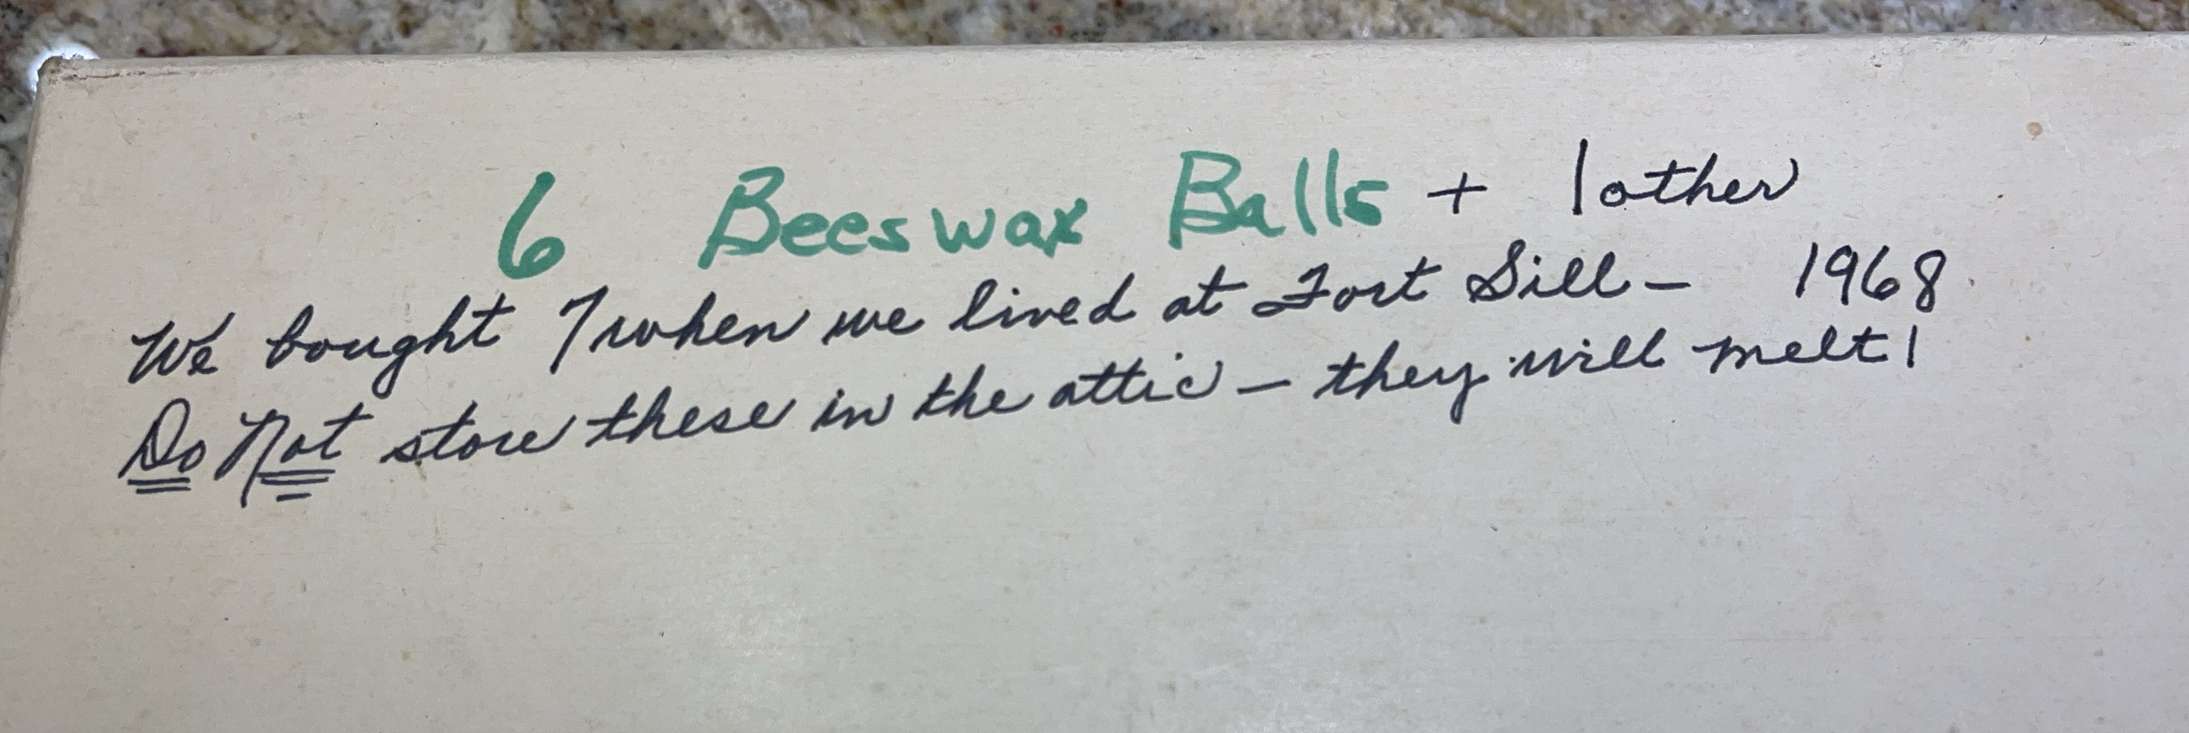 6 Beeswax Balls + 1 other
We bought 7 when we lived at Fort Sill - 1968.
Do Not store these in the attic - they will melt!